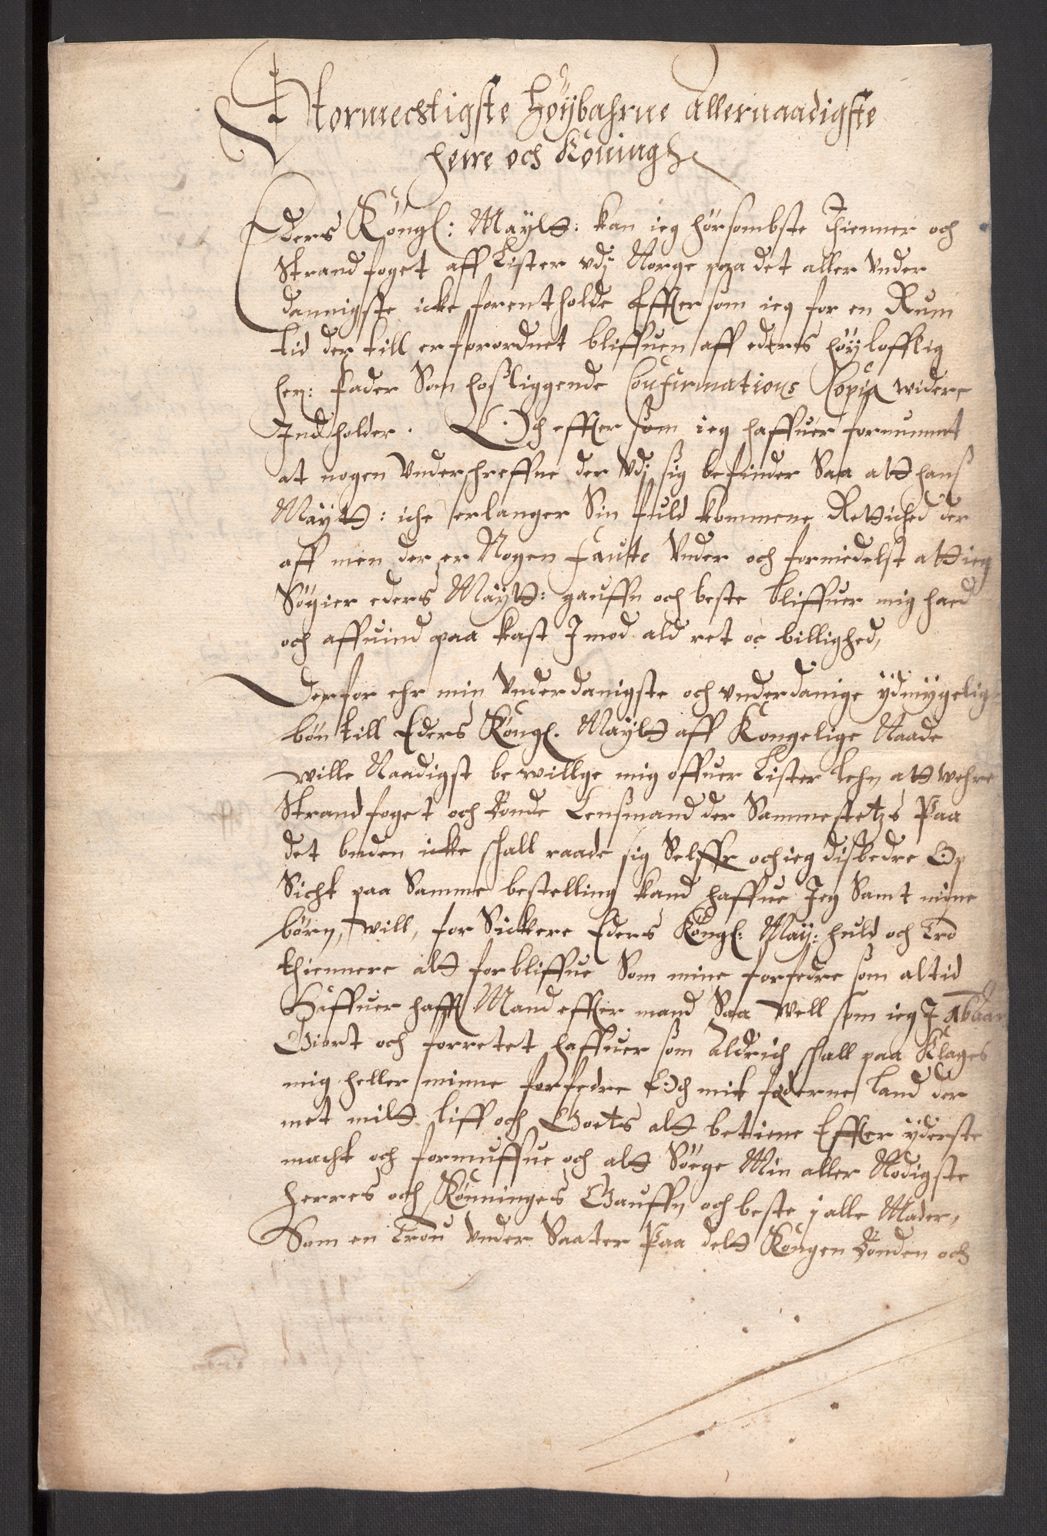 Stormechtigste Høybahrne Allernaadigste
herre och Køningh
Eders Köngl: Maÿts: kan ieg hörsombste Thienner och
Strand foget aff Lister vdj Norge paa det aller Vnder
dannigste icke forentholde Effter som ieg for en Rum
tid der till er forordnet bliffuen aff eders höÿlofflig
her: fader Som hosliggende Confirmations Copia widere
Indholder. Och effter som ieg haffuer fornummet
at nogen Vnderschreffne der vdj sig befinder Saa att hans
Maÿts: iche erlanger Sin fuld kommene Rettiched der
aff men der er Nogen faute Vnder och formedelst att ieg
Søgier eders Maÿts: gauffn och beste bliffuer mig had
och affuind paa kast J mod ald ret oc billighed,
Derfor ehr min Vnderdanigste och vnderdanige ÿdmygelig
bön till Eders Köngl. Maÿts aff Kongelige Naade
wille Naadigst bewillge mig offuer Lister Lehn att wehre
Strand foget och Bonde Lensmand der Sammestetzs Paa
det bunden icke schall raade sig Selffr och ieg disbedre Op
Sicht paa Samme bestelling kand haffue Jeg Samt mine
börn, will, for Sickere Eders Köngl: Maÿ: huld och Tro
thiennere alt forbliffue Som mine forfedre som altid
Haffuer hafft Mand effter mand Saa Well som ieg J 16 aar
Giort och forrettet haffuer som Aldrich schall paa Klages
mig heller minne forfedre Och mit federne Land der
met mitt liff och Goets alt betiene Effter ÿderste
macht och formuffue och alt Söege Min aller Nodigste
Herres och Könninges Gauffn och beste j alle Mader,
Som en Trou Vnder Saater Paa dett Kongen Bonden och